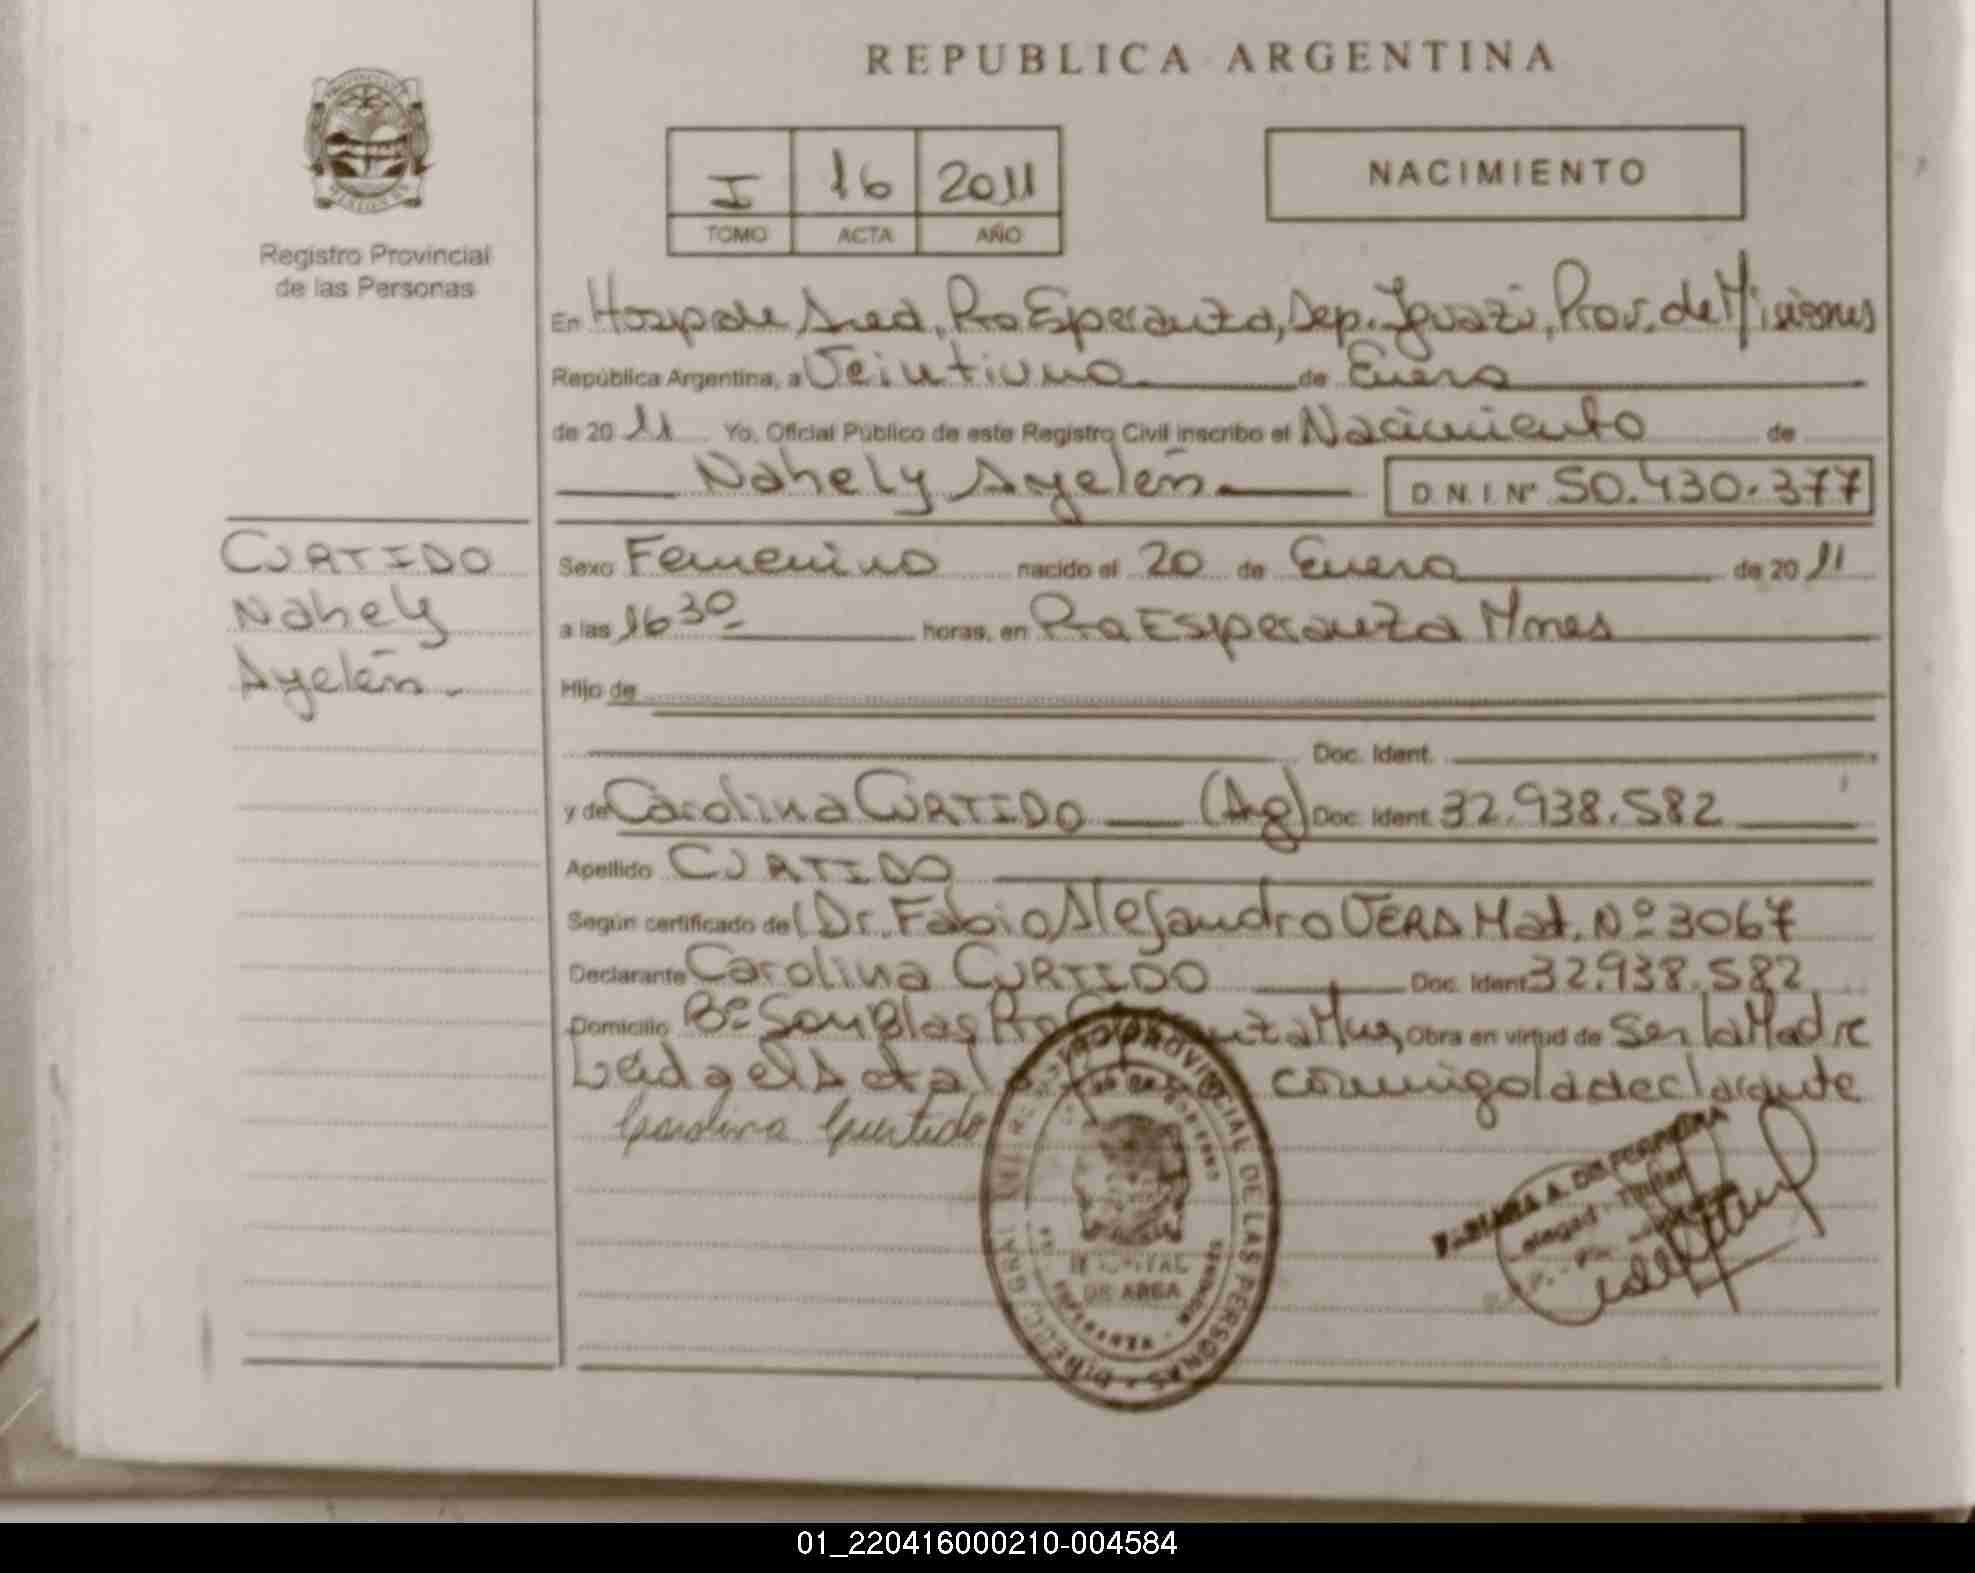 REPUBLICA ARGENTINA
I 16 2011
TOMO ACTA AÑO
NACIMIENTO
Registro Provincial
de las Personas
En Hospital de Area, Pto Esperanza, Dep. Iguazú, Prov. de Misiones
República Argentina, a Veintiuno de Enero
de 2011 Yo, Oficial Público de este Registro Civil inscribo el Nacimiento de
Nahely Ayelén D.N.I. Nº 50.430.377
CURTIDO
Nahely
Ayelén.
Sexo Femenino nacido el 20 de Enero de 2011
a las 16 30 horas, en Pto Esperanza Mnes
Hijo de
Doc. Ident.
y de Carolina CURTIDO (Arg) Doc. Ident. 32.938.582
Apellido CURTIDO
Según certificado del Dr. Fabio Alejandro VERA Mat. Nº 3067
Declarante Carolina CURTIDO Doc. Ident. 32.938.582
Domicilio Bº San Blas Pto Mnes, Obra en virtud de Ser la Madre
Leida el Acta conmigo la declarante
Carolina Curtido
REGISTRO PROVINCIAL DE LAS PERSONAS
HOSPITAL
DE AREA
A. DE FERREIRA
01_220416000210-004584